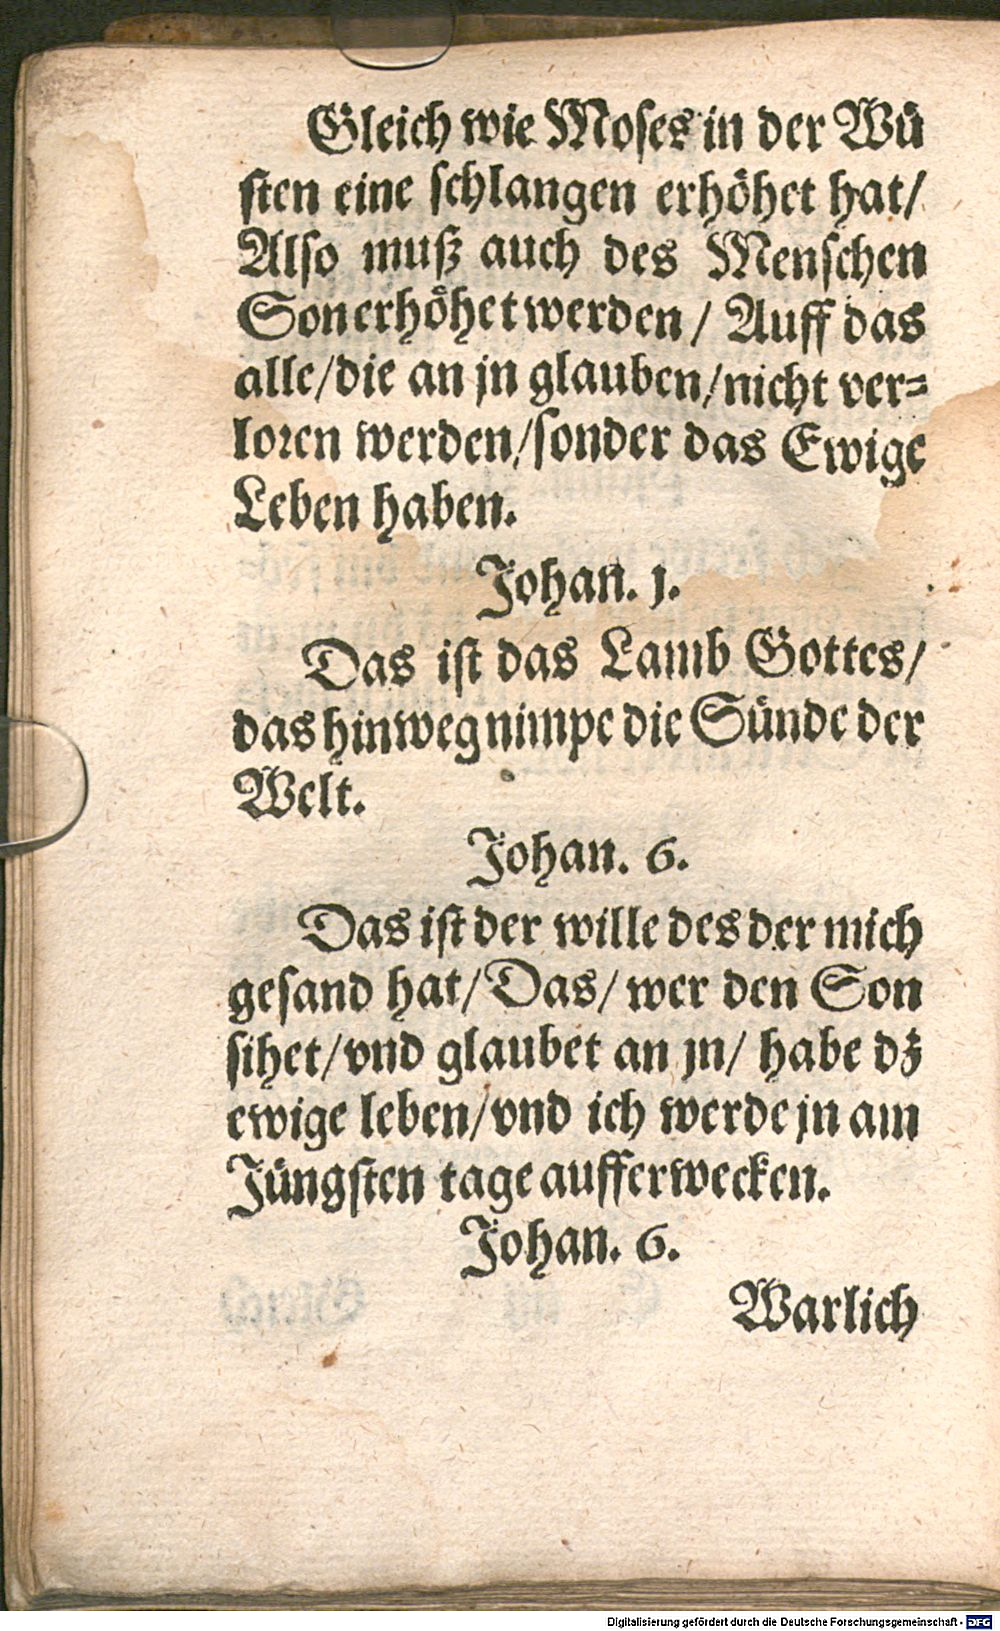 Gleich wie Moses in der Wü
sten eine schlangen erhöhet hat/
Also muß auch des Menschen
Son erhöhet werden / Auff das
alle/die an jn glauben/nicht ver-
loren werden/sonder das Ewige
Leben haben.
Johan. 1.
Das ist das Lamb Gottes/
das hinweg nimpe die Sünde der
Welt.
Johan. 6.
Das ist der wille des der mich
gesand hat/Das/ wer den Son
sihet/vnd glaubet an jn/ habe dz
ewige leben/vnd ich werde jn am
Jüngsten tage aufferwecken.
Johan. 6.
Warlich
Digitalisierung gefördert durch die Deutsche Forschungsgemeinschaft - DFG